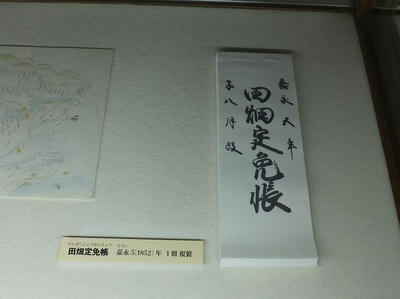 嘉永五年
田畑定免帳
子八月改
でんぱたじょうめんちょう かえい
田畑定免帳 嘉永5(1852)年 1冊 複製